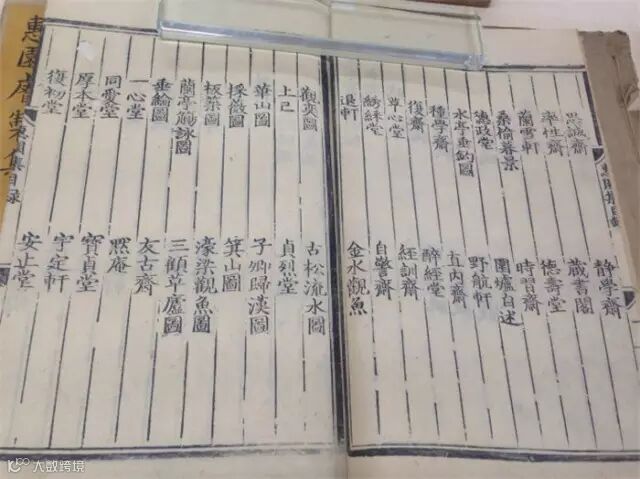 思誠齋 静學齋
率性齋 藏書閣
蘭雪軒 德壽堂
桑榆暮景 時習齋
憲政堂 圍爐自述
水亭垂釣圖 野航軒
種學齋 五內齋
復齋 醉經堂
草心堂 經訓齋
自警齋
退軒 金水觀魚
觀奕圖 古松流水圖
上巳 貞烈堂
華山圖 子卿歸漢圖
採薇圖 箕山圖
板築圖 濠梁觀魚圖
蘭亭觴詠圖 三顧草廬圖
垂綸圖 友古齋
一心堂 默庵
同愛堂 寳貞堂
厚本堂 宇定軒
復初堂 安止堂
惠園睿製集目錄
大数跨境